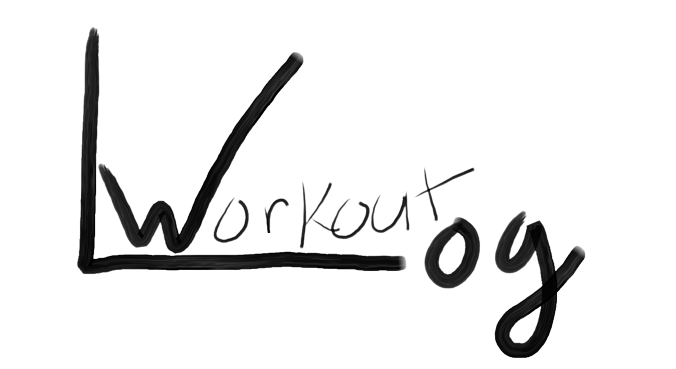 Workout
Log